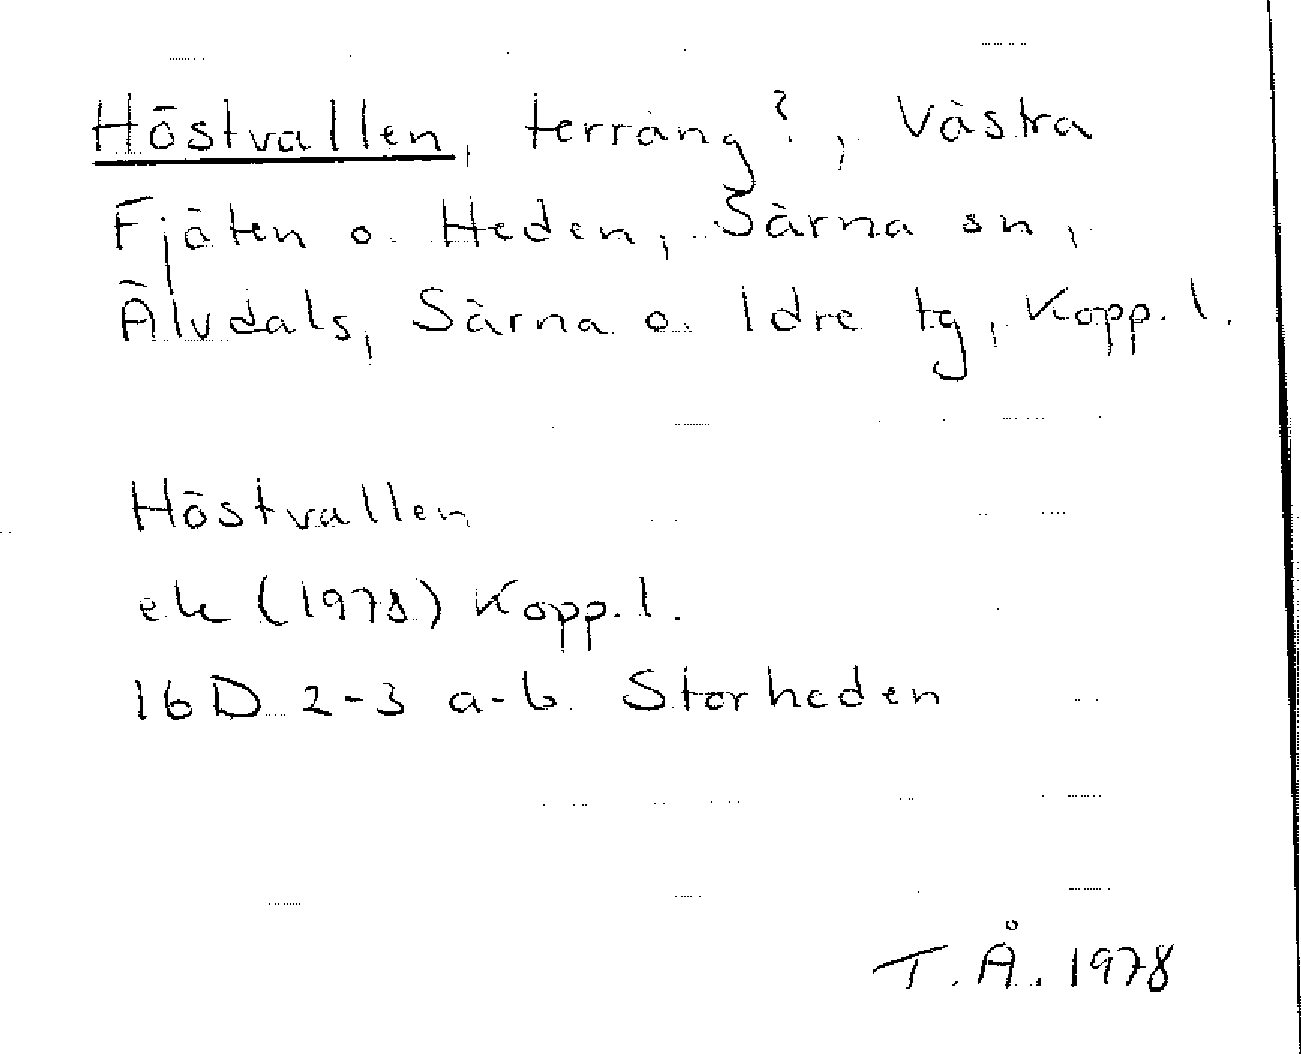 Höstvallen, terräng?, Västra
Fjäten o. Heden, Särna sn,
Älvdals, Särna o. Idre tg, Kopp. l.
Höstvallen
ek (1978) Kopp. l.
16D 2-3 a-b Storheden
T. Å. 1978